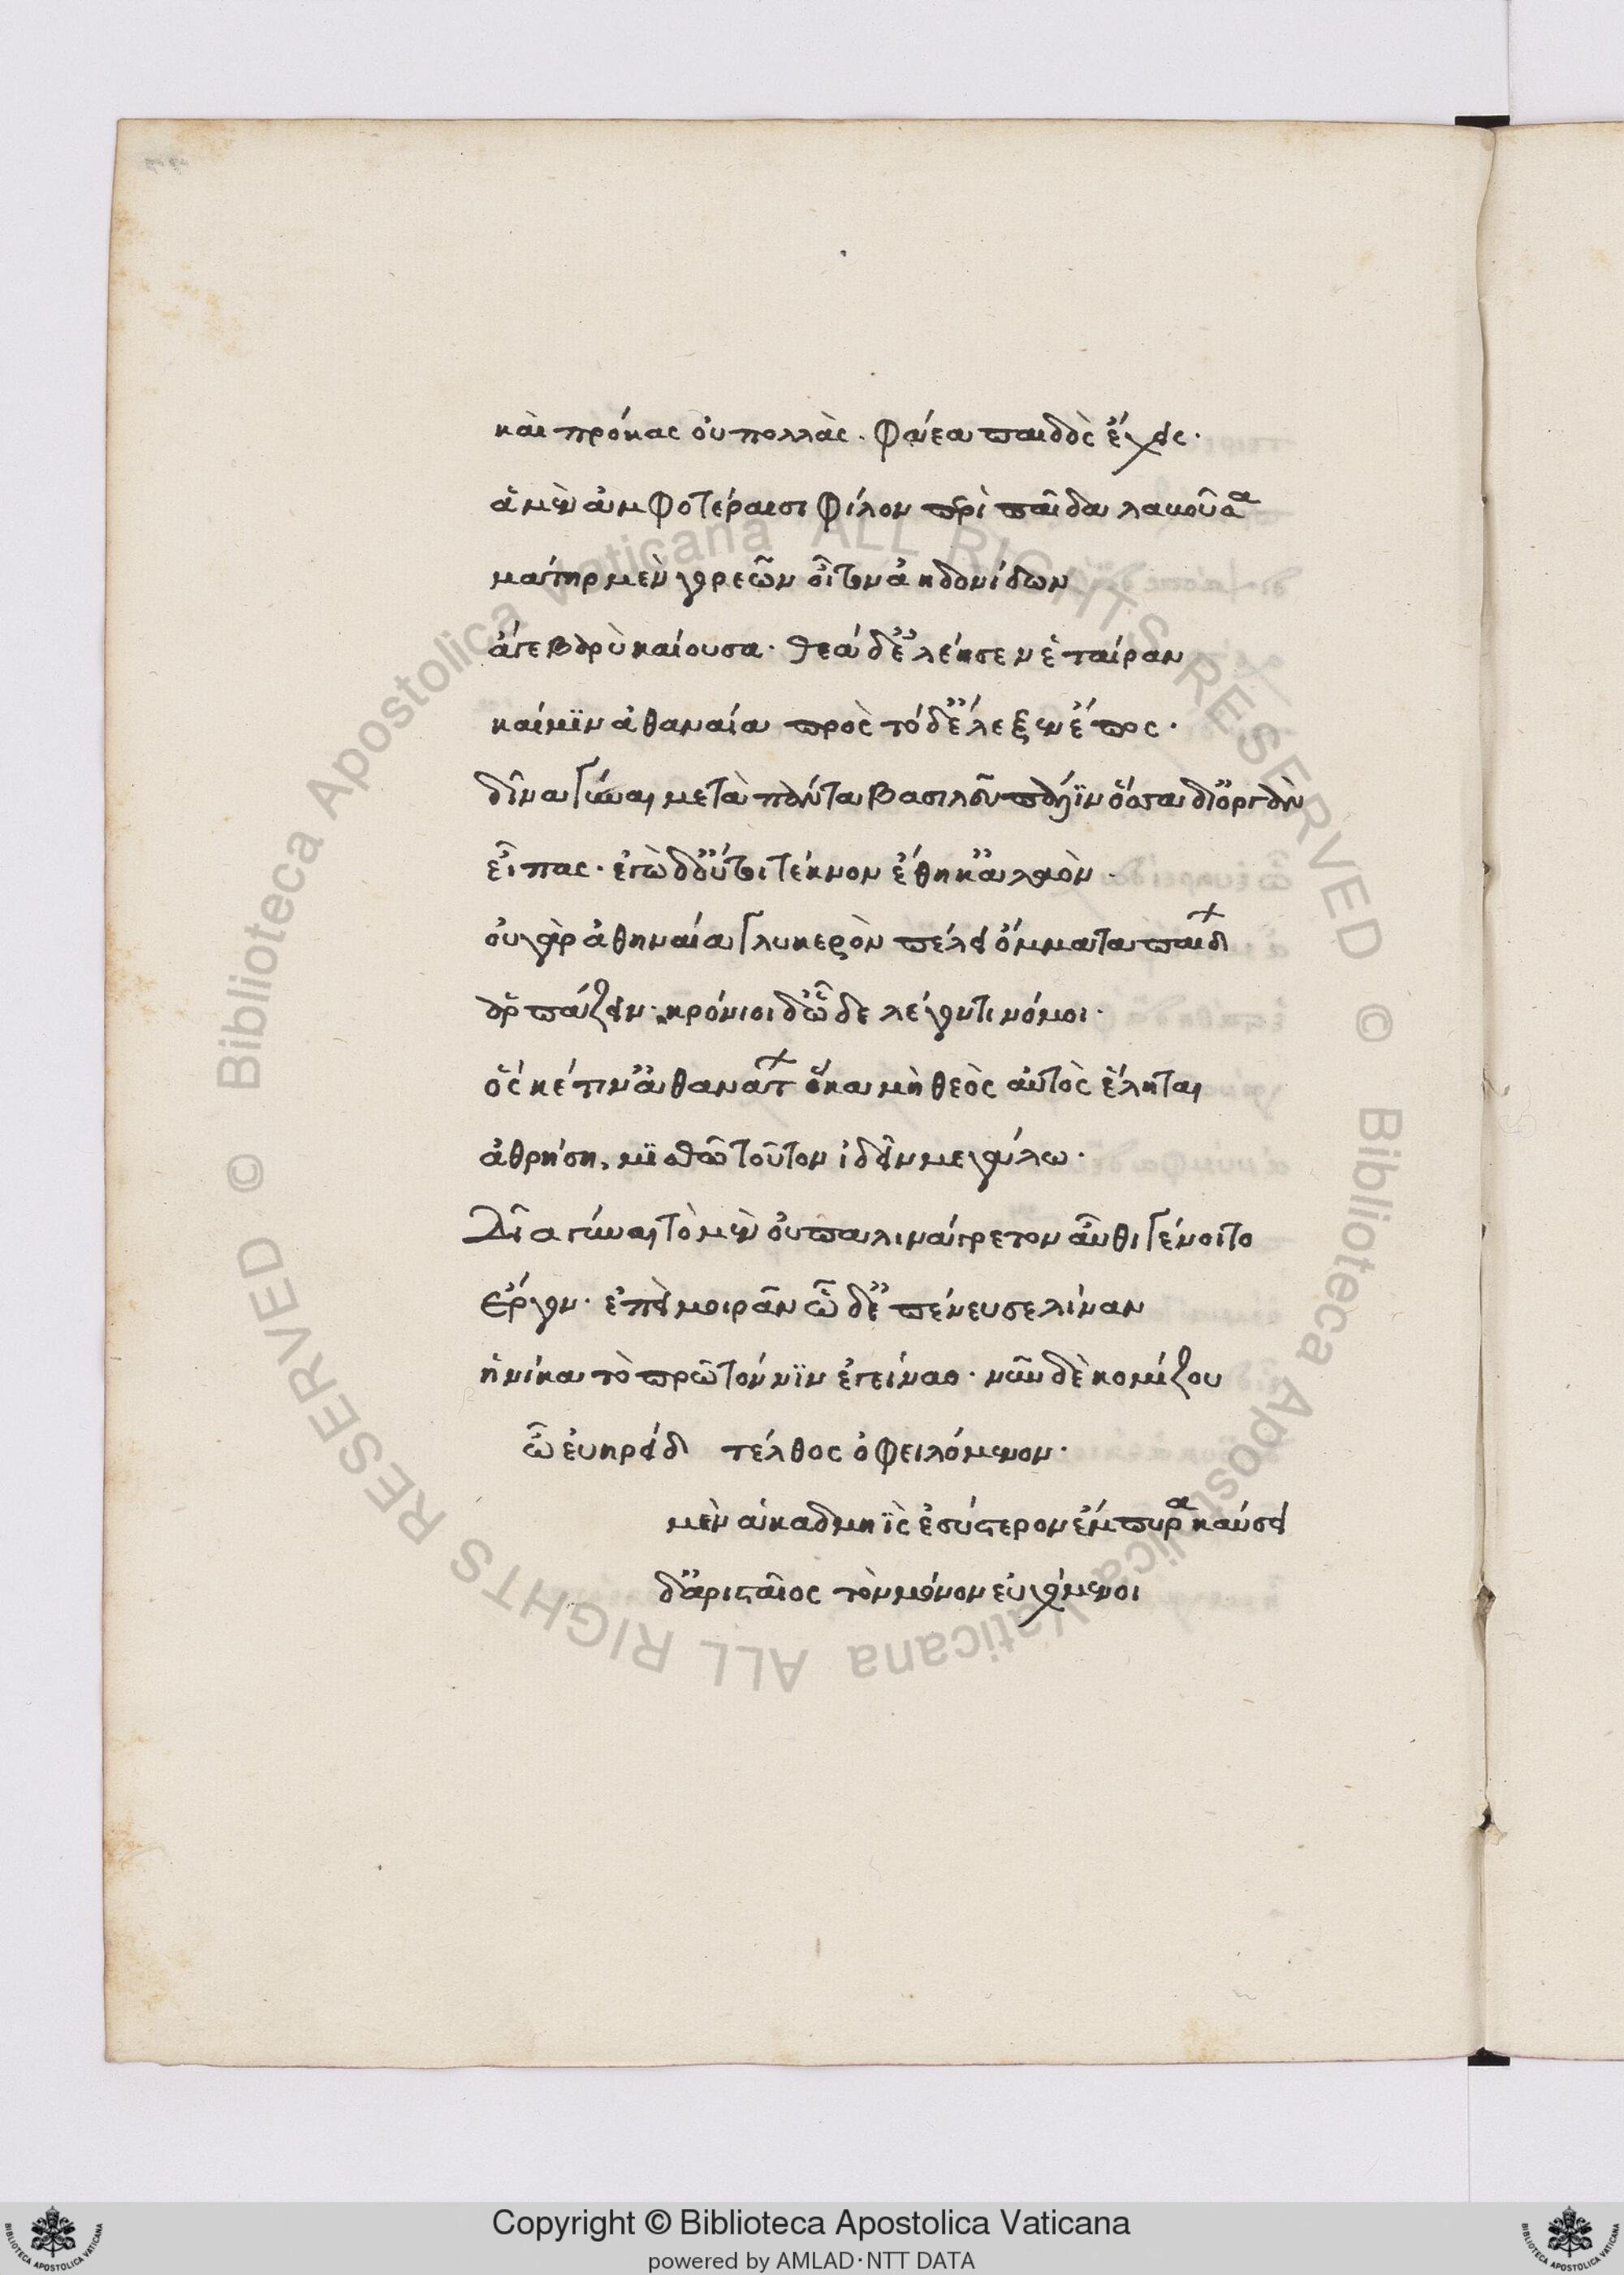 καὶ πρόκας οὐ πολλὰς. φάεα παιδὸς ἔχεις.
ἁ μὲν ἀμφοτέραισι φίλον περὶ παῖδα λακοῦσα
μάτηρ μὲν γορεῶν οἶτον ἀηδονίδων
ἄγε βαρὺ καίουσα. θεά δ' ἐλέησεν ἑταίραν
καί μϊν ἀθαναία πρὸς τόδ' ἔλεξεν ἔπος.
δῖνα γύναι μετὰ πάντα βασιλεῦ πάλϊν ὅσσα δι' ὀργὰν
εἶπας. ἐγὼ δ' οὔτοι τέκνον ἔθηκ' ἀλαὸν.
οὐ γὰρ ἀθηναία γλυκερὸν πέλει ὄμματα παιδων
ἁρπάζειν. κρόνιοι δ' ὧδε λέγοντι νόμοι.
ὅς κέ τιν' ἀθανατων ὅκα μὴ θεὸς αὐτὸς ἕληται
ἀθρήση, μϊσθῶ τοῦτον ἰδεῖν μεγάλω.
Δῖα γύναι τὸ μὲν οὐ παλινάγρετον αὖθι γένοιτο
ἔργον. ἐπεὶ μοιρᾶν ὧ δ' ἐπένευσε λίναν
ἡνίκα τὸ πρῶτόν νϊν ἐγείναο. νῦν δὲ κομίζου
ὦ εὐηρείδα τέλθος ὀφειλόμενον.
μὲν ἁ καδμηῒς ἐσύστερον ἔμπυρα καύσει
δ' ἀρισταῖος τὸν μόνον εὐχόμενοι